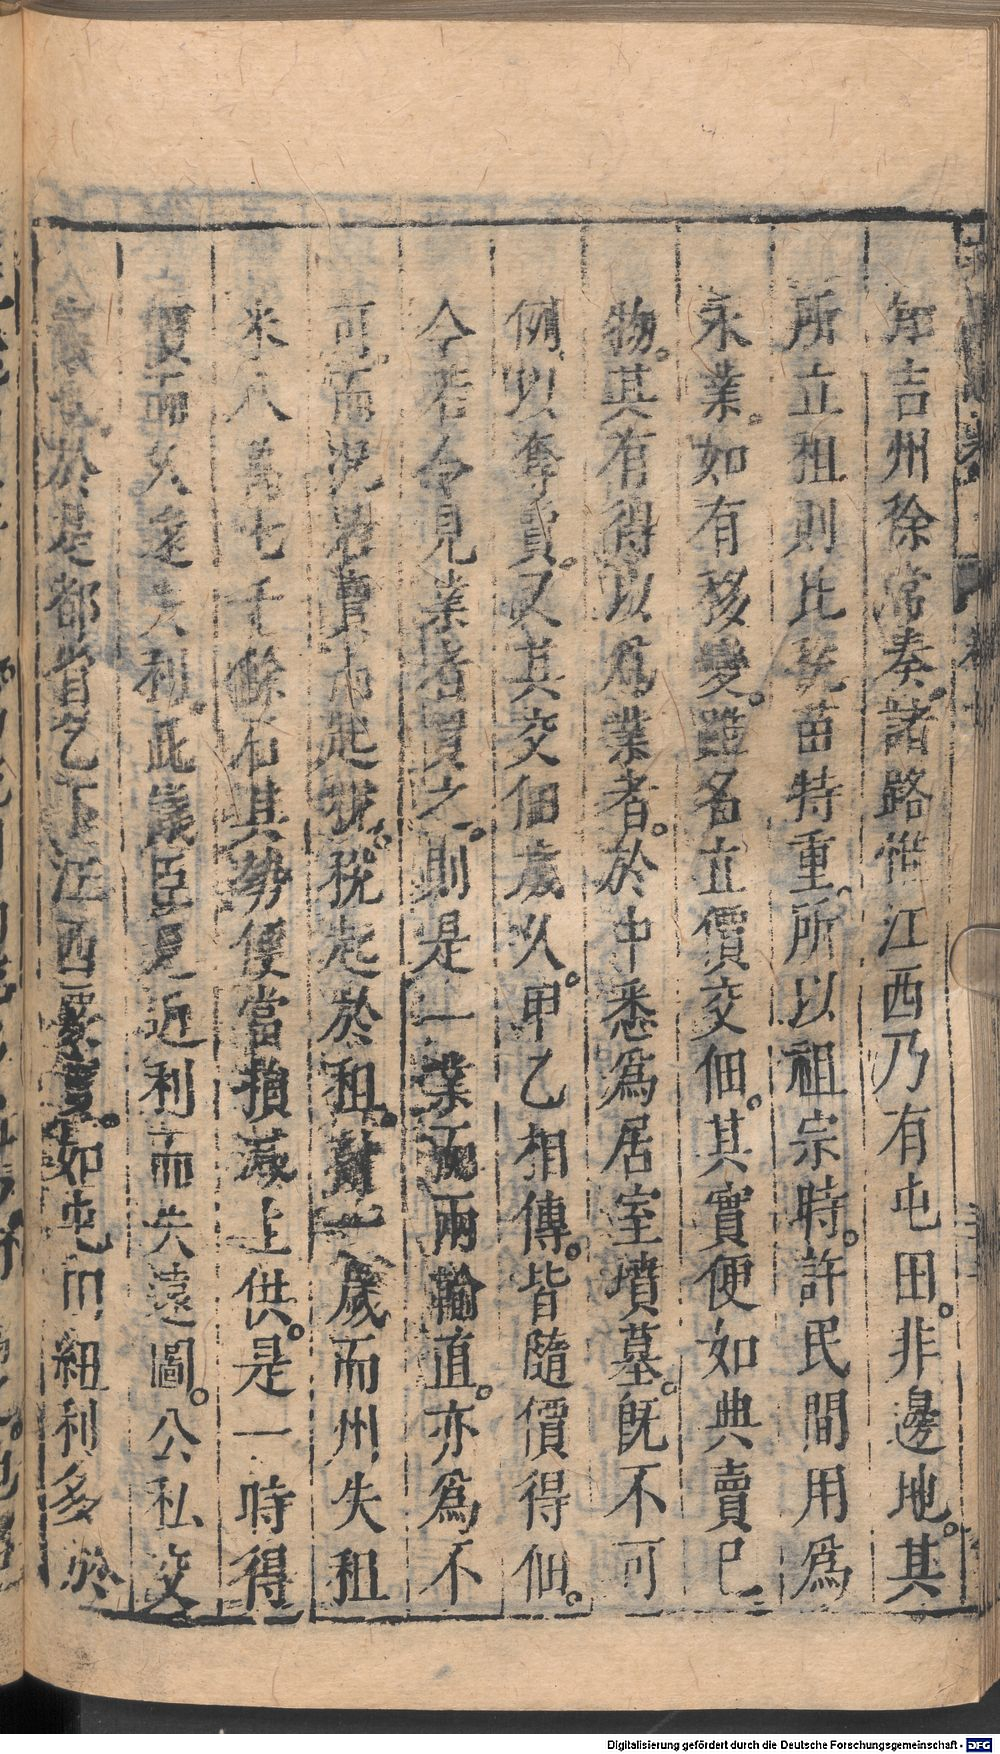 知吉州徐常奏。諸路惟江西乃有屯田。非邊地。其
所立租則比稅苗特重。所以祖宗時。許民間用爲
永業。如有移變。雖名立價交佃。其實便如典賣己
物。其有得以爲業者。於中悉爲居室墳墓。旣不可
例以奪賣。又其交佃歲久。甲乙相傳。皆隨價得佃。
今若令見業者買之。則是一業而兩輸直。亦爲不
可。而況若賣而起稅。稅起於租。計一歲而州失租
米八萬七千餘石。其勢便當損減上供。是一時得
價而久遠失利。此議臣見近利而失遠圖。公私交
於是都省乞下江西如屯田紐利多於
Digitalisierung gefördert durch die Deutsche Forschungsgemeinschaft - DFG